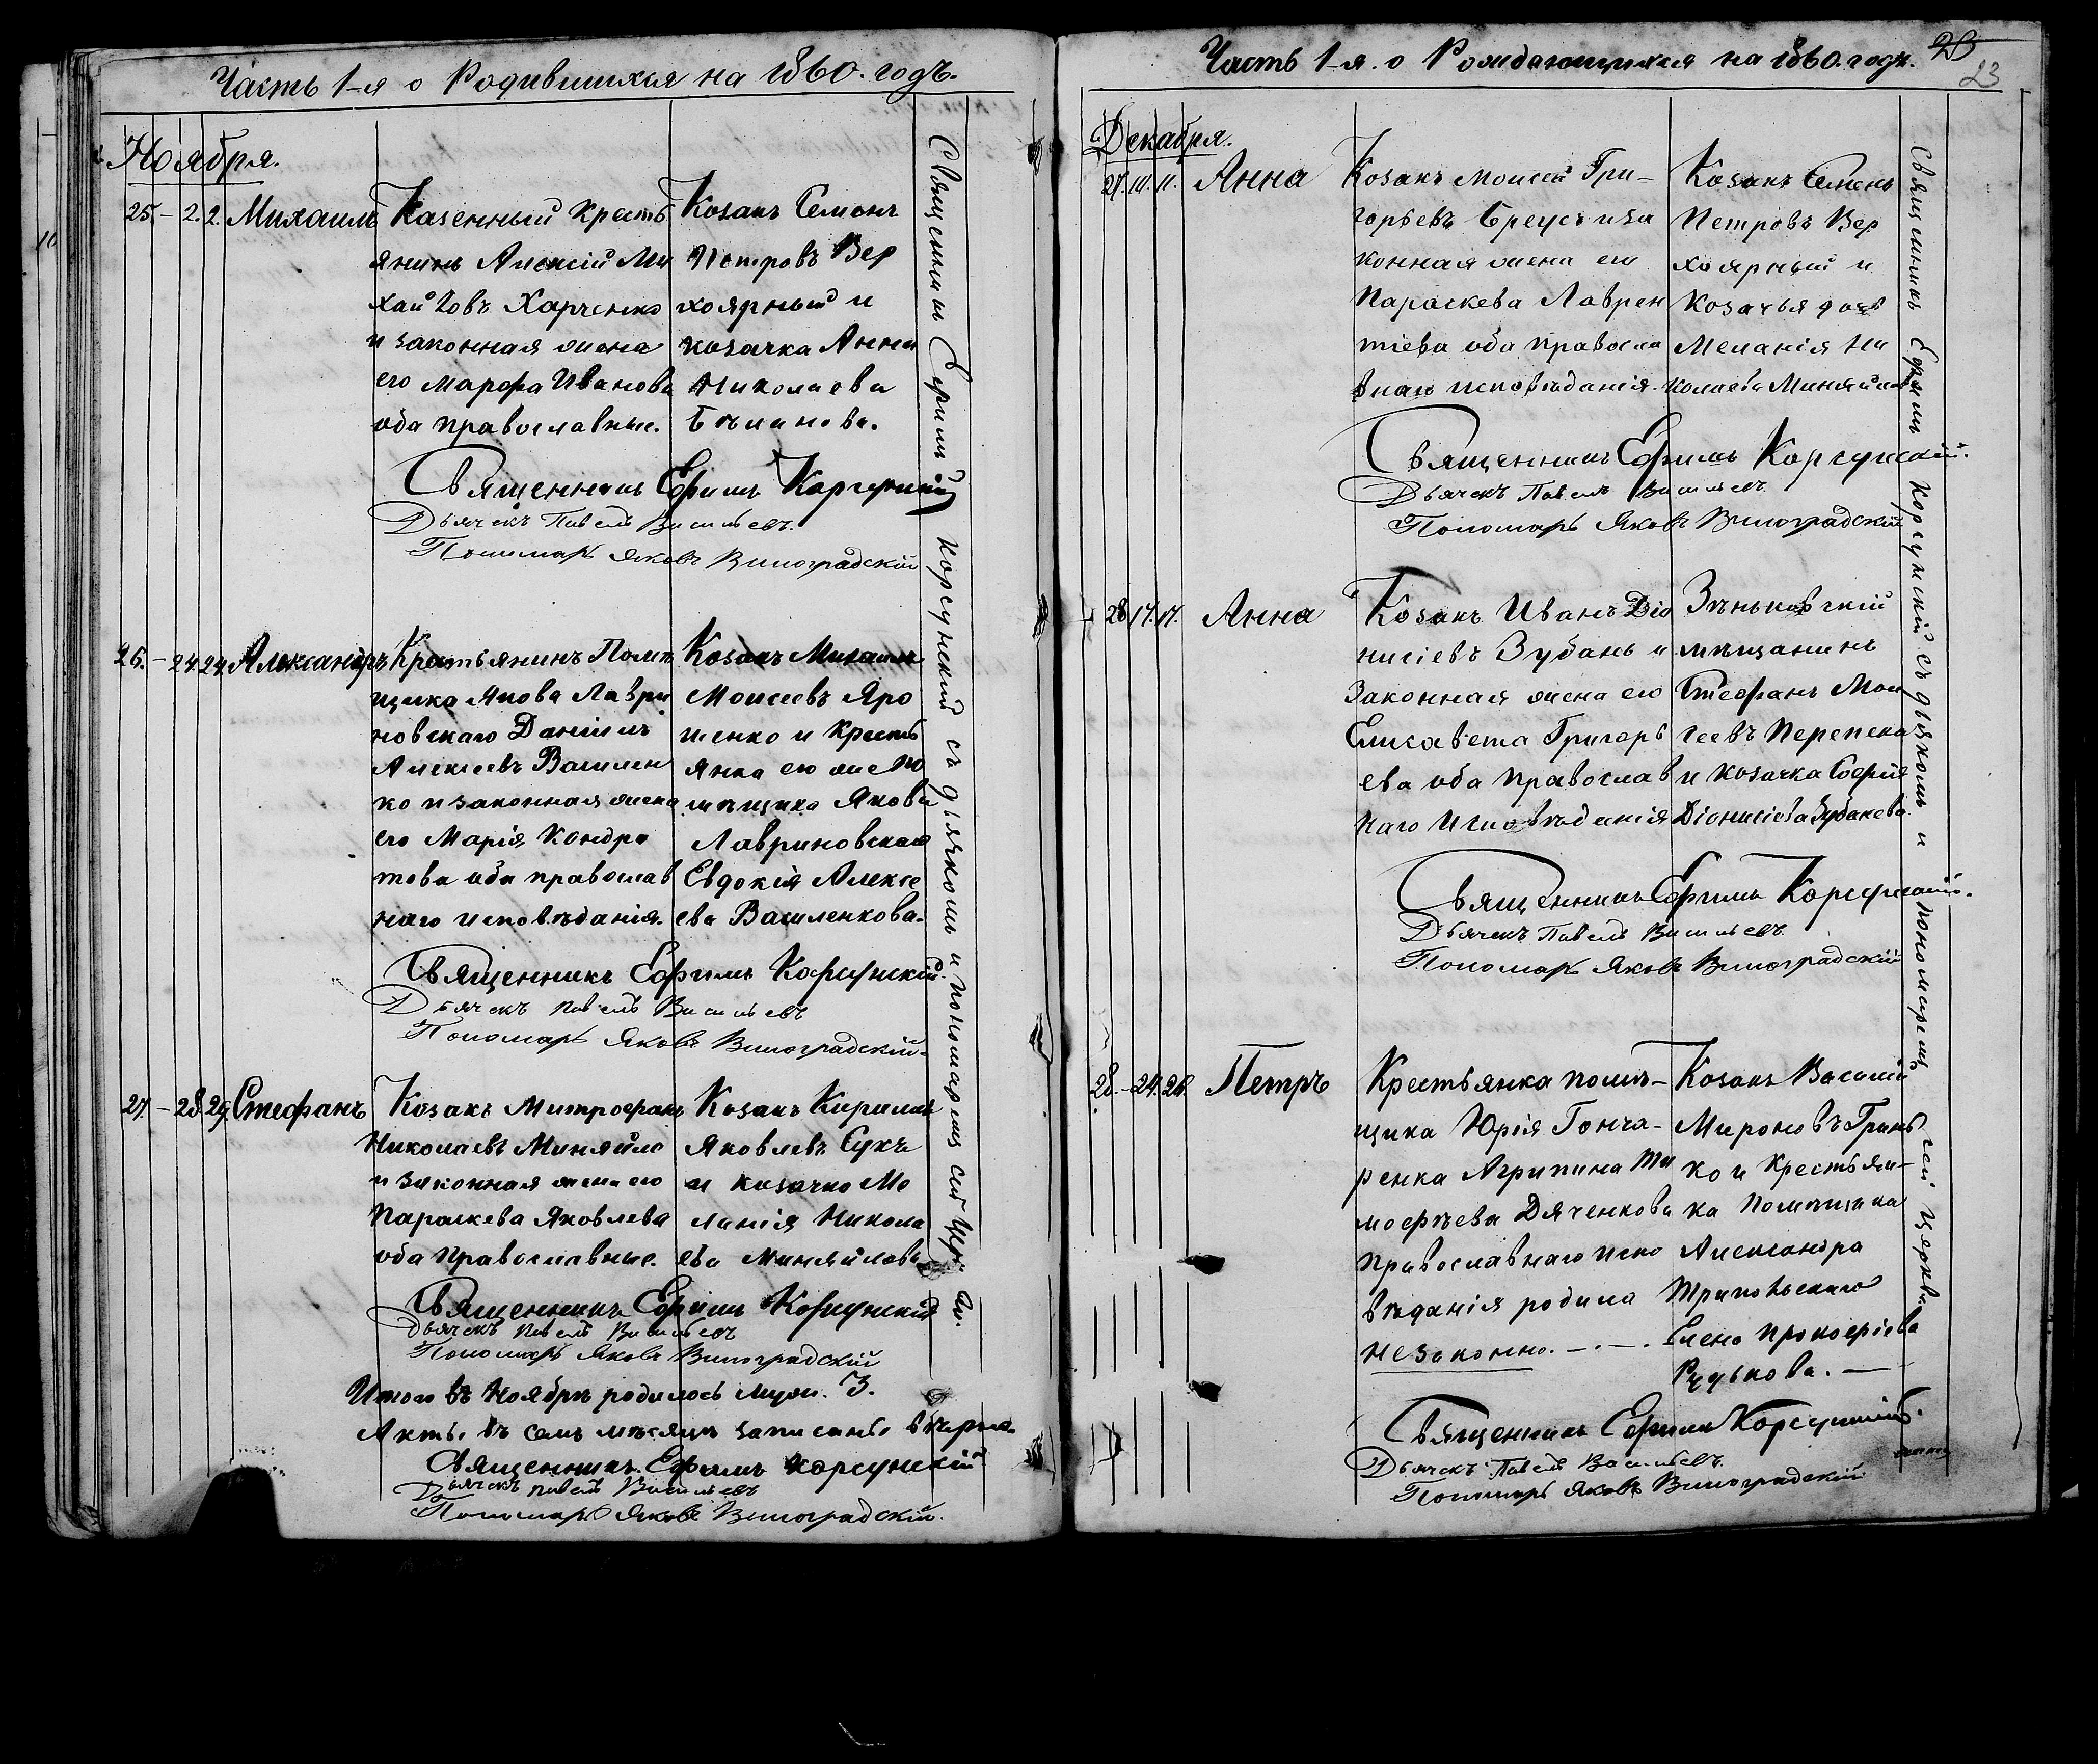 Часть 1-я о Родившихся на 1860. годъ.
Ноября.
25. - 2. 2. Михаилъ
Казенный крестья
янинъ Алексій Ми
хайловъ Харченко
и законная жена
его Марѳа Иванова
оба православные.
Козакъ Семенъ
Петровъ Вер
хоярный и
козачка Анна
Николаева
Священникъ Ефимъ Корсунскій
Дьячекъ Павелъ Васильевъ.
Пономарь Яковъ Виноградскій
26. - 24. 24. Александръ
Крестьянинъ Помѣ
щика Якова Лаври
новскаго Даніилъ
Алексѣевъ Василен
ко и законная жена
его Марія Кондра
това оба православ
наго исповѣданія.
Козакъ Михаилъ
Моисеевъ Яро
шенко и крестья
янка его же по
мѣщика Якова
Лавриновскаго
Евдокія Алексе
ева Василенкова.
Священникъ Ефимъ Корсунскій.
Дьячекъ Павелъ Васильевъ
Пономарь Яковъ Виноградскій.
27. - 28. 29. Стефанъ
Козакъ Митрофанъ
Николаевъ Миняйло
и законная жена его
Параскева Яковлева
оба православные.
Козакъ Кириллъ
Яковлевъ Сукъ
и козачка Ме
ланія Никола
ева Миняйлова
Священникъ Ефимъ Корсунскій
Дьячекъ Павелъ Васильевъ
Пономарь Яковъ Виноградскій
Итого въ Ноябрѣ родилось муж. 3.
Акты въ семъ мѣсяцѣ записаны вѣрно.
Священникъ Ефимъ Корсунскій
Дьячекъ Павелъ Васильевъ
Пономарь Яковъ Виноградскій.
Священникъ Ефимъ Корсунскій съ дьячкомъ и пономаремъ сей
Часть 1-я. о Рождающихся на 1860. годъ.
23
Декабря.
27. 10. 11. Анна
Козакъ Моисей Гри-
горьевъ Бреусъ и за
конная жена его
Параскева Лаврен
тіева оба правосла
внаго исповѣданія.
Козакъ Семенъ
Петровъ Вер
хоярный и
Козачья дочь
Меланія Ни
колаева Миняйлова
Священникъ Ефимъ Корсунскій.
Дьячекъ Павелъ Васильевъ.
Пономарь Яковъ Виноградскій
28. 17. 17. Анна
Козакъ Иванъ Діо
нисіевъ Зубань и
Законная жена его
Елисавета Григорь
ева оба православ
наго исповѣданія
Зѣньковскій
мѣщанинъ
Стефанъ Мои
сеевъ Перепека
и козачка Софія
Діонисіева Зубанева.
Священникъ Ефимъ Корсунскій.
Дьячекъ Павелъ Васильевъ.
Пономарь Яковъ Виноградскій
28. - 24. 26. Петръ
Крестьянка помѣ-
щика Юрія Гонча-
ренка Агрипина Ти
мофѣева Дяченкова
православнаго испо
вѣданія родила
незаконно. -.-.
Козакъ Василій
Мироновъ Гринь
ко и крестьян-
ка Помѣщика
Александра
Трипольскаго
Елена Прокофіева
Рудькова. -
Священникъ Ефимъ Корсунскій.
Дьячекъ Павелъ Васильевъ.
Пономарь Яковъ Виноградскій
Священникъ Ефимъ Корсунскій съ дьячкомъ и пономаремъ сей церкви.